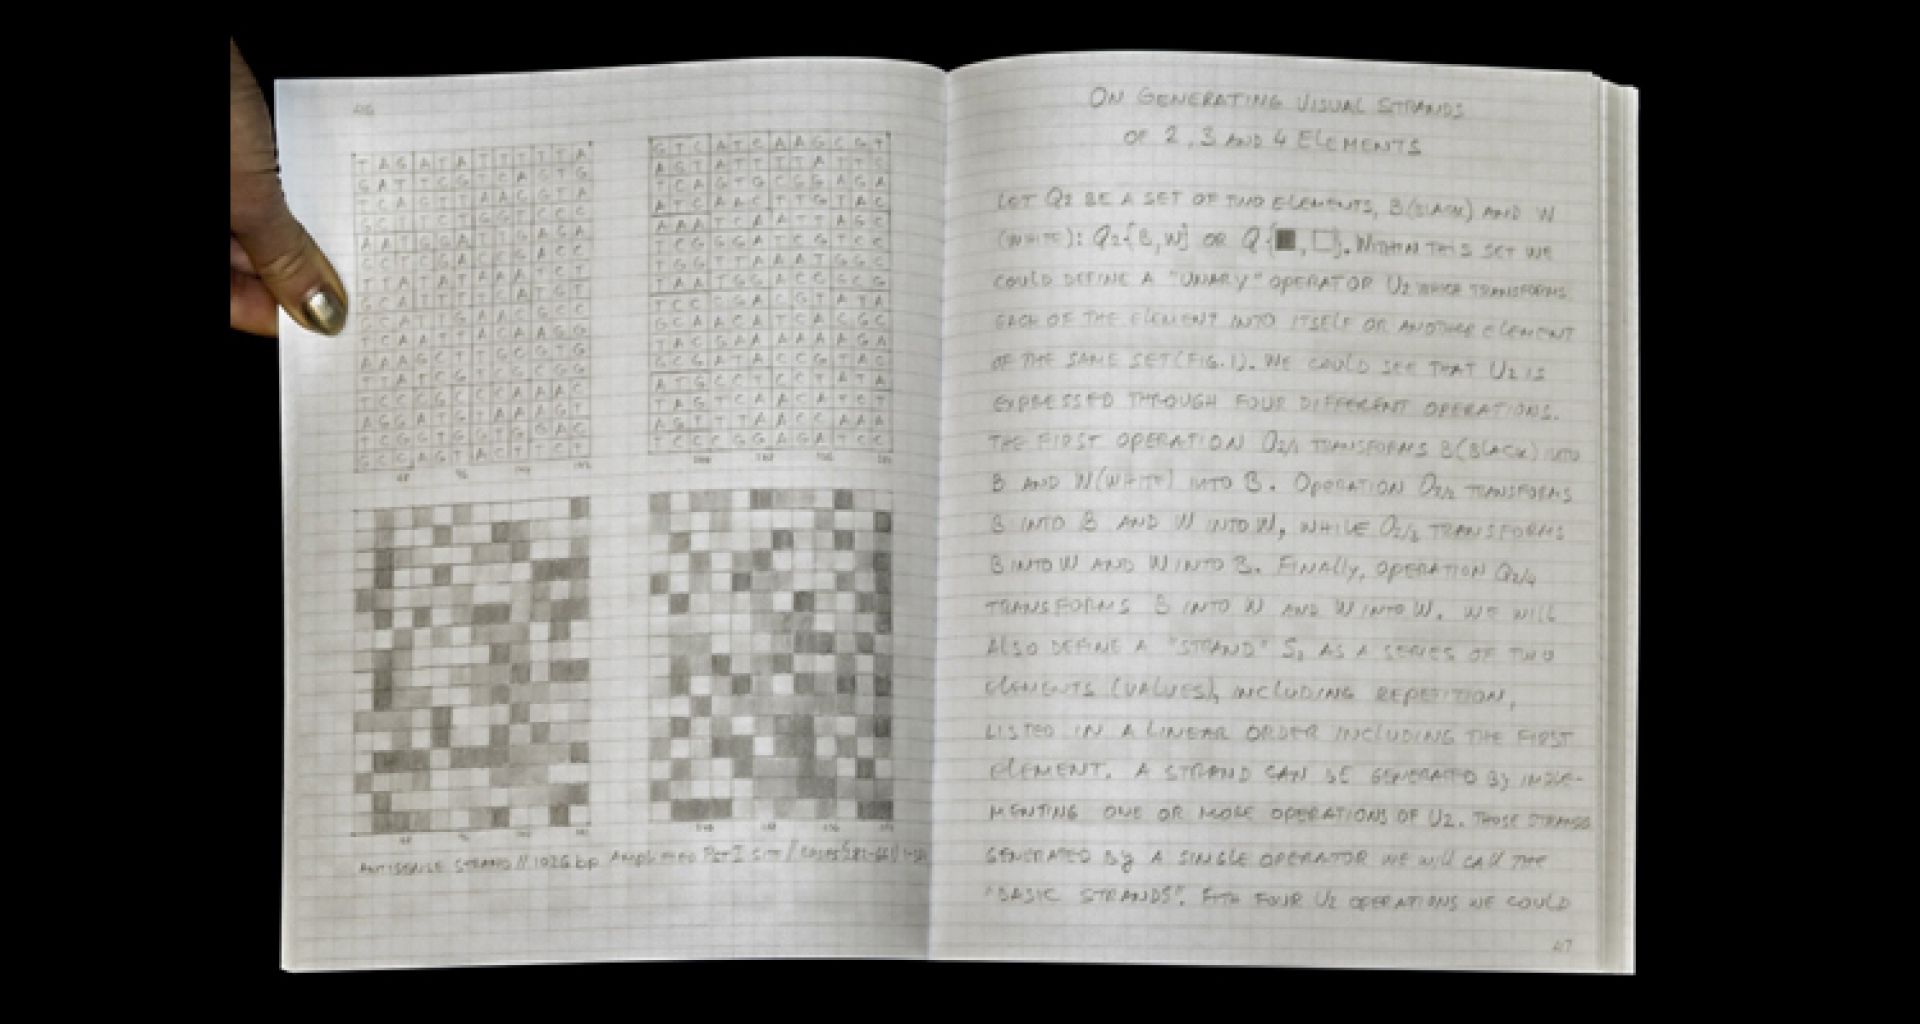 46
T A G A T A T T T T T A
G A T T C G T C A G T G
T C A C T T A A C G T A
G C T T C T G G T C C C
A A T G G A T T G A G A
C C T C G A C C G A C C
T T A T A T A A A T C T
G C A T T T T C A T G T
G C A T T G A A C G C C
T C A A T T A C A A G G
A A A G C T T G C G T G
T T A T C G T C G C G G
T C C C G C C C A A A C
A G G A T G T A A A G T
T C G G T G G T G G A C
G C C A G T A C T T C T
48 96 144 192
G T C A T C A A G C G T
A G T A T T T T A T T C
T C A G T G C G G A G A
A T C A A C T T G T A C
A A A T C A A T T A G C
T C G G G A T C G T C C
T G G T T A A A T G G C
T A A T G G A C C G C G
T C C C G A C G T A T A
G C A A C A T C A C G C
T A C G A A A A A A G A
G C G A T A C C G T A C
A T G C C T C C T A T A
T A G T C A A C A T C T
A G T T T A A C C A A A
T C C C G G A G A T C C
ANTISENSE STRAND // 1026 bp AMPLIFIED PST I SITE /
ON GENERATING VISUAL STRANDS
OF 2, 3 AND 4 ELEMENTS
LET Q2 BE A SET OF TWO ELEMENTS, B (BLACK) AND W
(WHITE): Q2{B,W} OR Q{■,□}. WITHIN THIS SET WE
COULD DEFINE A "UNARY" OPERATOR U2 WHICH TRANSFORMS
EACH OF THE ELEMENT INTO ITSELF OR ANOTHER ELEMENT
OF THE SAME SET (FIG. 1). WE COULD SEE THAT U2 IS
EXPRESSED THROUGH FOUR DIFFERENT OPERATIONS.
THE FIRST OPERATION O2/1 TRANSFORMS B (BLACK) INTO
B AND W (WHITE) INTO B. OPERATION O2/2 TRANSFORMS
B INTO B AND W INTO W, WHILE O2/3 TRANSFORMS
B INTO W AND W INTO B. FINALLY, OPERATION O2/4
TRANSFORMS B INTO W AND W INTO W. WE WILL
ALSO DEFINE A "STRAND" S, AS A SERIES OF TWO
ELEMENTS (VALUES), INCLUDING REPETITION,
LISTED IN A LINEAR ORDER INCLUDING THE FIRST
ELEMENT. A STRAND CAN BE GENERATED BY IMPLE-
MENTING ONE OR MORE OPERATIONS OF U2. THOSE STRANDS
GENERATED BY A SINGLE OPERATOR WE WILL CALL THE
"BASIC STRANDS". FOUR U2 OPERATIONS WE COULD
47